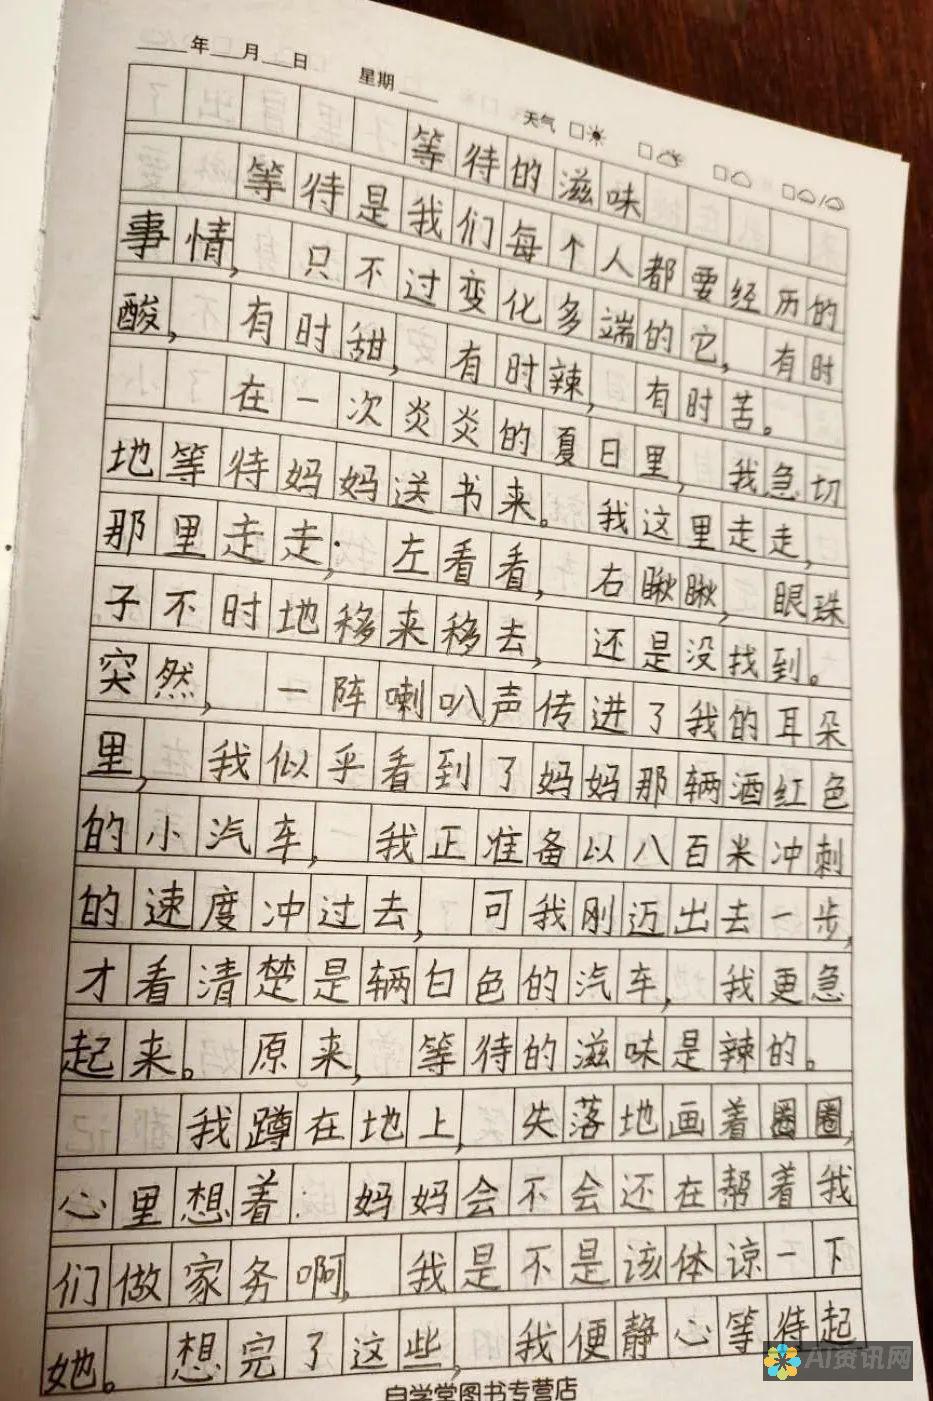 年 月 日 星期 天气
等待的滋味
等待是我们每个人都要经历的
事情，只不过变化多端的它，有时
酸，有时甜，有时辣，有时苦。
在一次炎炎的夏日里，我急切
地等待妈妈送书来。我这里走走，
那里走走；左看看，右瞅瞅，眼珠
子不时地移来移去，还是没找到。
突然，一阵喇叭声传进了我的耳朵
里，我似乎看到了妈妈那辆酒红色
的小汽车，我正准备以八百米冲刺
的速度冲过去，可我刚迈出去一步，
才看清楚是辆白色的汽车，我更急
起来。原来，等待的滋味是辣的。
我蹲在地上，失落地画着圈圈，
心里想着：妈妈会不会还在帮着我
们做家务啊，我是不是该体谅一下
她。想完了这些，我便静心等待起
自学堂图书专营店
AI资讯网